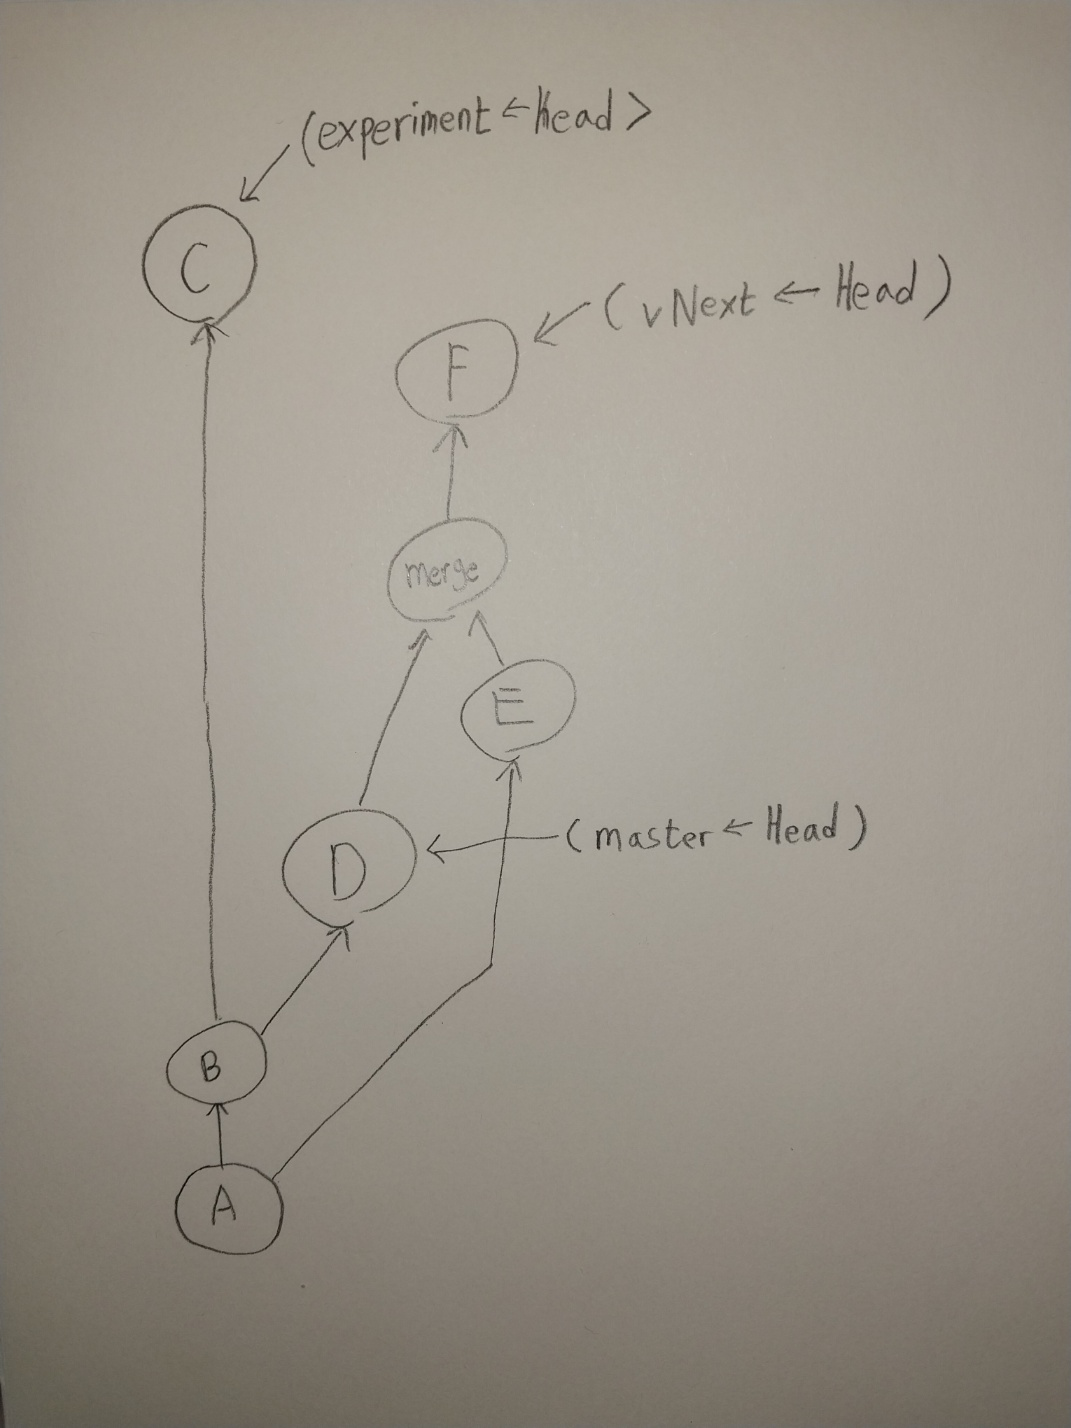 (experiment ← Head >
C
(vNext ← Head)
F
merge
E
(master ← Head)
D
B
A